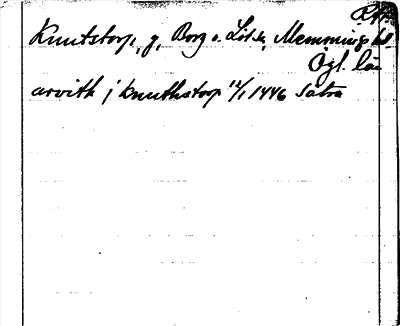 Knutstorp, g, Borg o. Löts s, Memmings hd
Ögl. län
arvith j knuthstorp 12/1 1446 Sätra